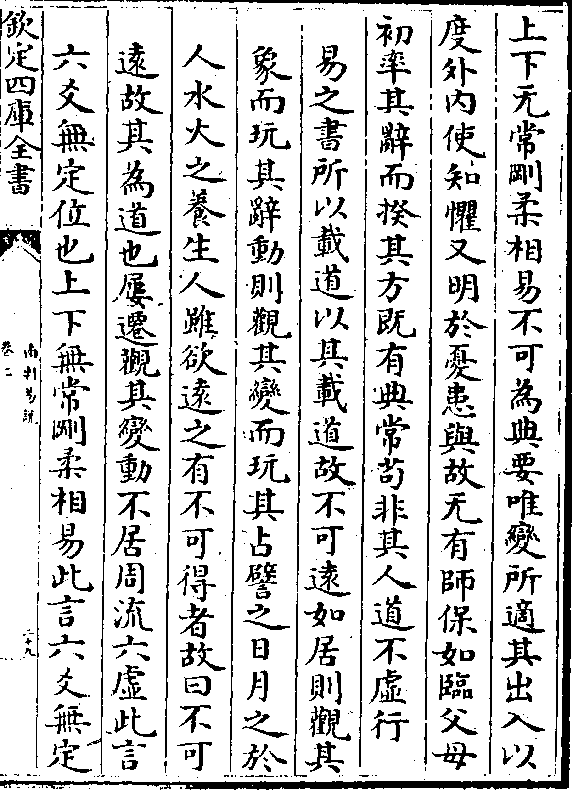 上下无常剛柔相易不可為典要唯變所適其出入以
度外内使知懼又明於憂患與故无有師保如臨父母
初率其辭而揆其方既有典常苟非其人道不虛行
易之書所以載道以其載道故不可逺如居則觀其
象而玩其辭動則觀其變而玩其占譬之日月之於
人水火之養生人雖欲逺之有不可得者故曰不可
逺故其為道也屢遷觀其變動不居周流六虛此言
六爻無定位也上下無常剛柔相易此言六爻無定
欽定四庫全書
卷二
南軒易說
二十九